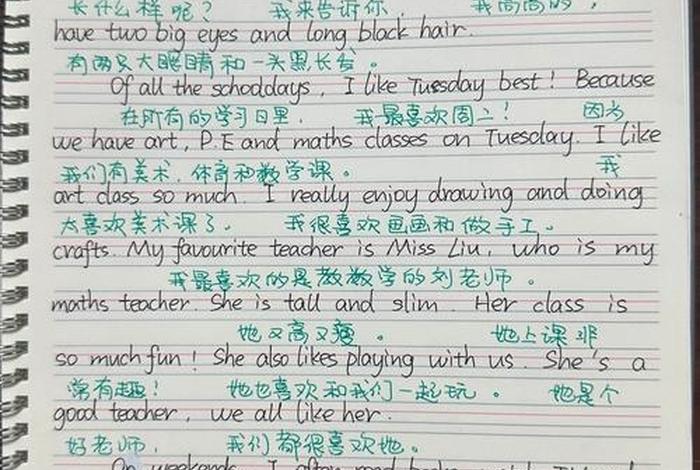 长什么样呢? 我来告诉你, 我高高的,
have two big eyes and long black hair.
有两只大眼睛和一头黑长发。
Of all the schooldays, I like Tuesday best! Because
在所有的学习日里, 我最喜欢周二! 因为
we have art, P.E and maths classes on Tuesday. I like
我们有美术,体育和数学课。 我
art class so much. I really enjoy drawing and doing
太喜欢美术课了。 我很喜欢画画和做手工。
crafts. My favourite teacher is Miss Liu, who is my
我最喜欢的是教数学的刘老师。
maths teacher. She is tall and slim. Her class is
她又高又瘦。 她上课非
so much fun! She also likes playing with us. She's a
常有趣! 她也喜欢和我们一起玩。 她是个
good teacher, we all like her.
好老师, 我们都很喜欢她。
On weekends, I often read